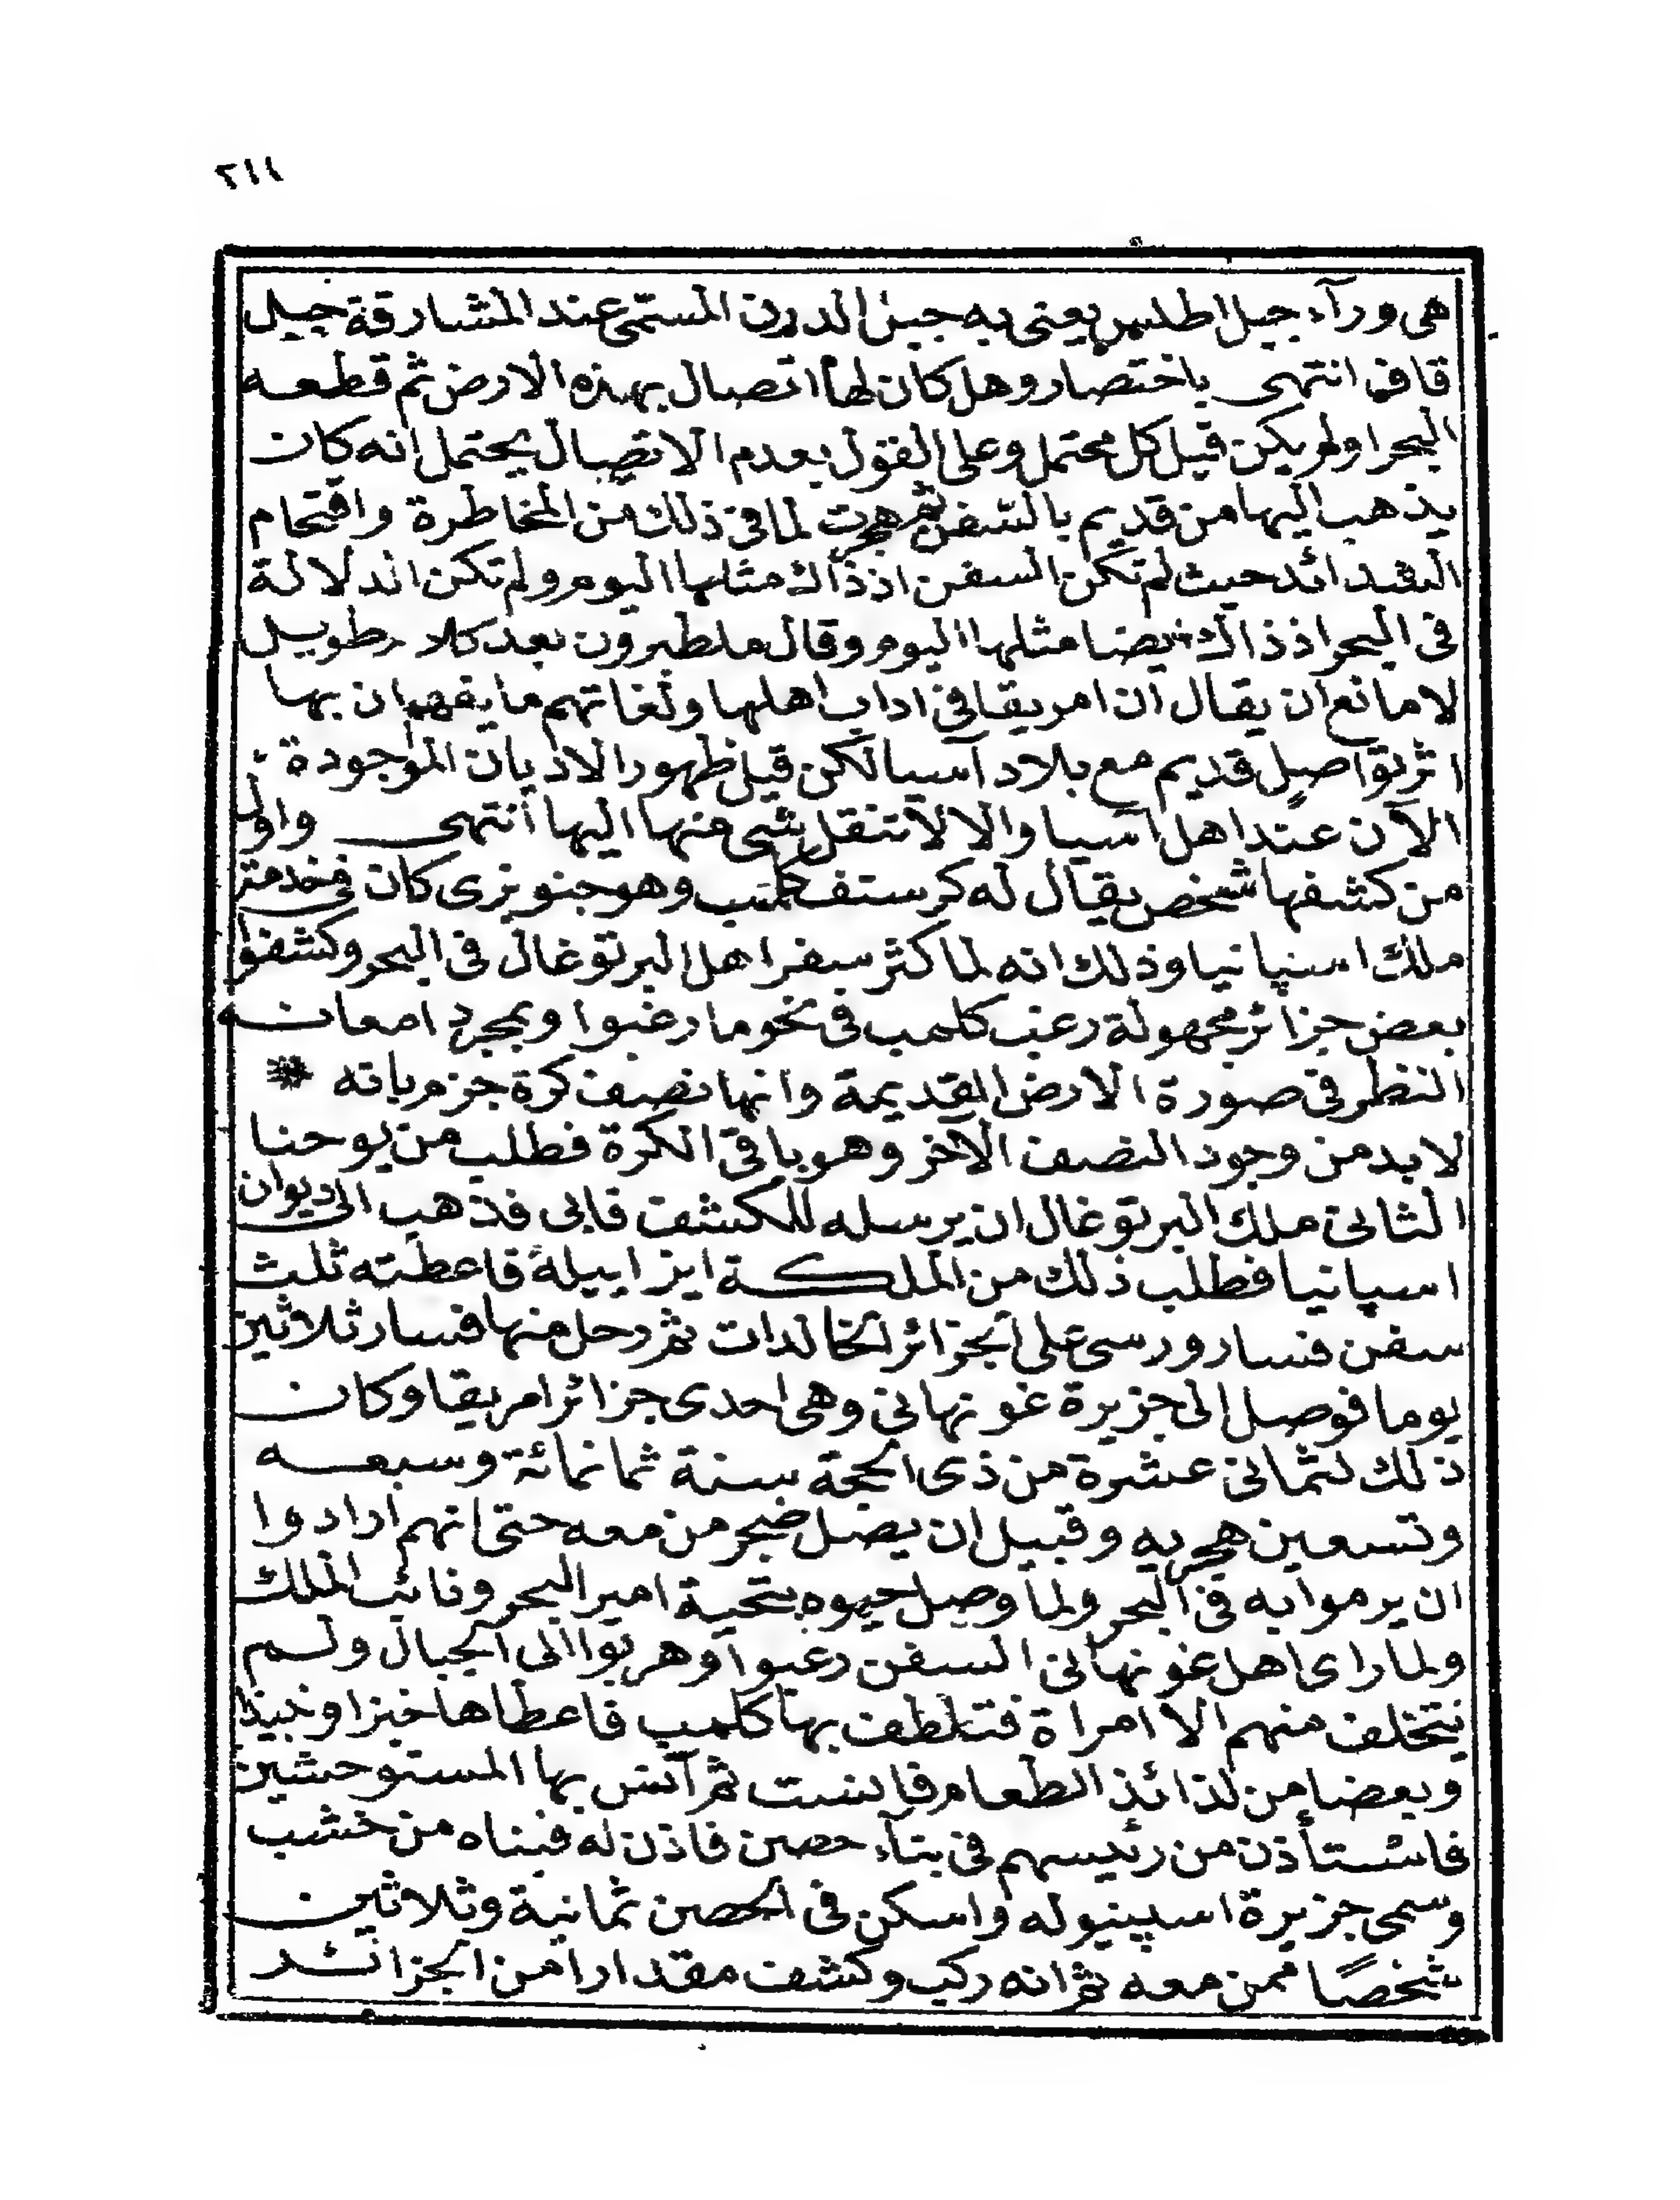 ٢١١
هى ورآء جبل اطلس يعنى به جبل الدرن المسمى عند المشارقة جبل
قاف انتهى باختصار وهل كان لها اتصال بهذه الارض ثم قطعه
البحر اولم يكن قيل كل محتمل وعلى القول بعدم الاتصال يحتمل انه كان
يذهب اليها من قديم بالسفن ثم هجرت لما فى ذلك من المخاطرة واقتحام
الشدائد حيث لم تكن السفن اذ ذاك مثلها اليوم ولم تكن الدلالة
فى البحر اذ ذاك ايضا مثلها اليوم وقال ملطبرون بعد كلام طويل
لا مانع ان يقال ان امريقا فى اداب اهلها ولغاتهم ما يفهم ان بها
اثر تواصل قديم مع بلاد آسيا لكن قبل ظهور الاديان الموجودة
الآن عند اهل آسيا والا لانتقل شى منها اليها انتهى واول
من كشفها شخص يقال له كرستف كلمب وهو جنويزى كان فى خدمة
ملك اسپانيا وذلك انه لما كثر سفر اهل البرتوغال فى البحر وكشفوا
بعض جزائر مجهولة رغب كلمب فى نحو ما رغبوا وبمجرد امعانه
النظر فى صورة الارض القديمة وانها نصف كرة جزم بانه *
لا بد من وجود النصف الآخر وهو باقى الكرة فطلب من يوحنا
الثانى ملك البرتوغال ان يرسله للكشف فابى فذهب الى ديوان
اسپانيا فطلب ذلك من الملكة ايزابيلة فاعطته ثلث
سفن فسار ورسى على الجزائر الخالدات ثم رحل منها فسار ثلاثين
يوما فوصل الى جزيرة غونهانى وهى احدى جزائر امريقا وكان
ذلك لثمانى عشرة من ذى الحجة سنة ثمانمائة وسبعه
وتسعين هجريه وقبيل ان يصل ضجر من معه حتى انهم ارادوا
ان يرموا به فى البحر ولما وصل حيوه بتحية امير البحر ونائب الملك
ولما راى اهل غونهانى السفن رعبوا وهربوا الى الجبال ولم
يتخلف منهم الا امراة فتلطف بها كلمب فاعطاها خبزا ونبيذا
وبعضا من لذائذ الطعام فانست ثم آنس بها المستوحشين
فاستأذن من رئيسهم فى بنآء حصن فاذن له فبناه من خشب
وسمى جزيرة اسپينيوله واسكن فى الحصن ثمانية وثلاثين
شخصًا ممن معه ثم انه ركب وكشف مقدارا من الجزائر